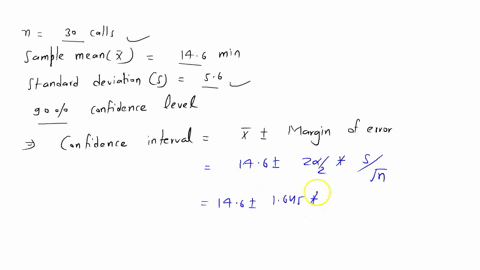 n = 30 calls ✓
Sample mean (x̄) = 14.6 min
Standard deviation (s) = 5.6 ✓
90% confidence level
⇒ Confidence interval = x̄ ± Margin of error
= 14.6 ± zα/2 * s/√n
= 14.6 ± 1.645 *